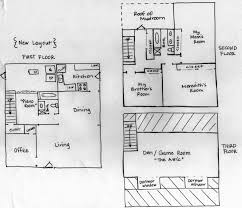 {New Layout}
FIRST FLOOR
Kitchen
Dining
Office
Living
Roof of
Mudroom
My
Mom's
Room
My
Brother's
Room
Meredith's
Room
SECOND
FLOOR
Den / Game Room
"The Attic"
Dormer
Window
Dormer
Window
THIRD
FLOOR